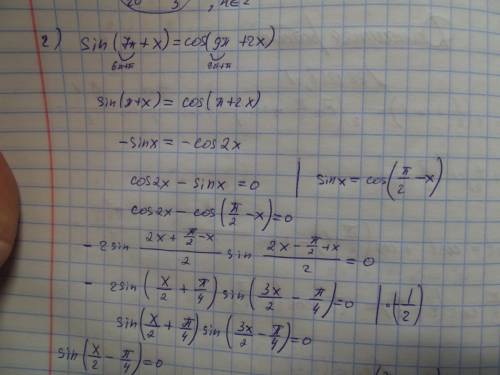 2) sin(7π+x)=cos(9π+2x)
6π+π 8π+π
sin(π+x)=cos(π+2x)
-sinx=-cos2x
cos2x-sinx=0 | sinx=cos(π/2-x)
cos2x-cos(π/2-x)=0
-2sin (2x+π/2-x)/2 sin (2x-π/2+x)/2 =0
-2sin(x/2+π/4)sin(3x/2-π/4)=0 |·(-1/2)
sin(x/2+π/4)sin(3x/2-π/4)=0
sin(x/2-π/4)=0